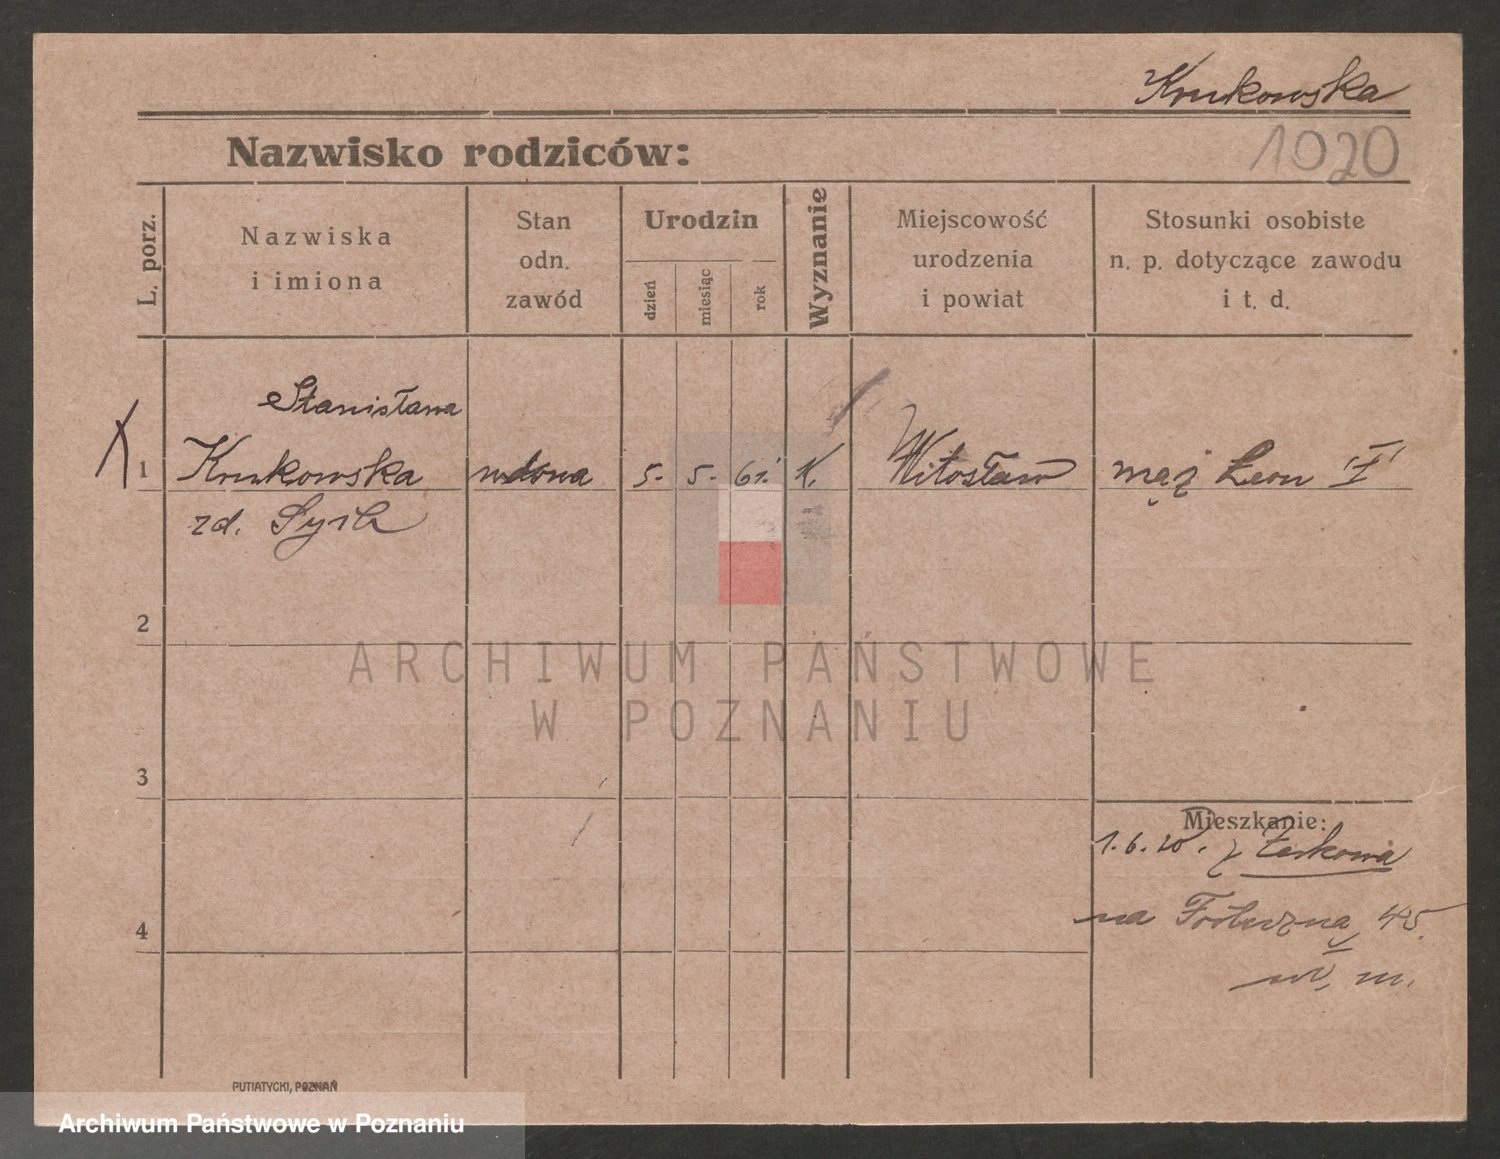 Krukowska
1020
Nazwisko rodziców:
L. porz.
Nazwiska
i imiona
Stan
odn.
zawód
Urodzin
dzień
miesiąc
rok
Wyznanie
Miejscowość
urodzenia
i powiat
Stosunki osobiste
n. p. dotyczące zawodu
i t. d.
Stanisława
1 Krukowska wdowa 5. 5. 61. K. Witosław mąż Leon
zd.
2
ARCHIWUM PAŃSTWOWE
W POZNANIU
3
Mieszkanie:
1.6. z Żerkowa
na 45
4
m.
PUTIATYCKI, POZNAŃ
Archiwum Państwowe w Poznaniu